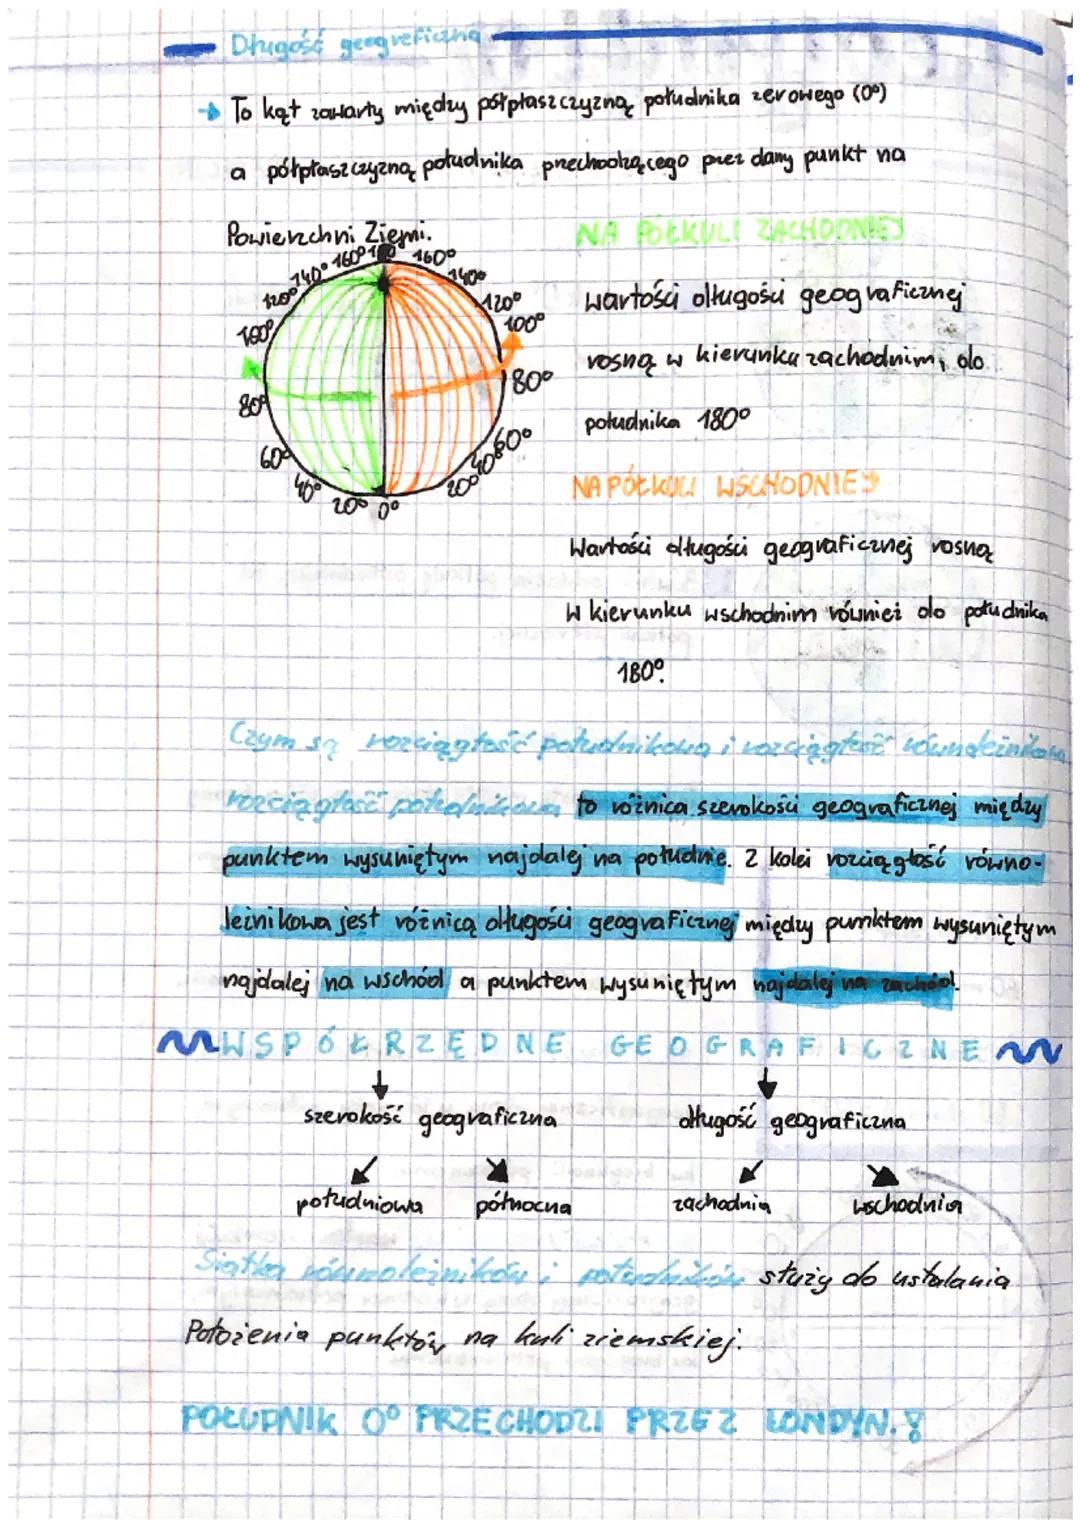 Długość geograficzna
→ To kąt zawarty między półpłaszczyzną południka zerowego (0°)
a półpłaszczyzną południka przechodzącego przez dany punkt na
Powierzchni Ziemi.
NA PÓŁKULI ZACHODNIEJ
wartości długości geograficznej
rosną w kierunku zachodnim, do
południka 180°
120° 140° 160° 180 160° 140° 120° 100° 80° 60° 40° 20° 0° 20° 40° 60° 80° 100°
NA PÓŁKULI WSCHODNIEJ
Wartości długości geograficznej rosną
w kierunku wschodnim również do południka
180°.
Czym są rozciągłość południkowa i rozciągłość równoleżnikowa
rozciągłość południkowa to różnica szerokości geograficznej między
punktem wysuniętym najdalej na południe. Z kolei rozciągłość równo-
leżnikowa jest różnicą długości geograficznej między punktem wysuniętym
najdalej na wschód a punktem wysuniętym najdalej na zachód.
WSPÓŁRZĘDNE GEOGRAFICZNE
szerokość geograficzna długość geograficzna
południowa północna zachodnia wschodnia
Siatka równoleżników i południków służy do ustalania
Położenia punktów na kuli ziemskiej.
POŁUDNIK 0° PRZECHODZI PRZEZ LONDYN.!